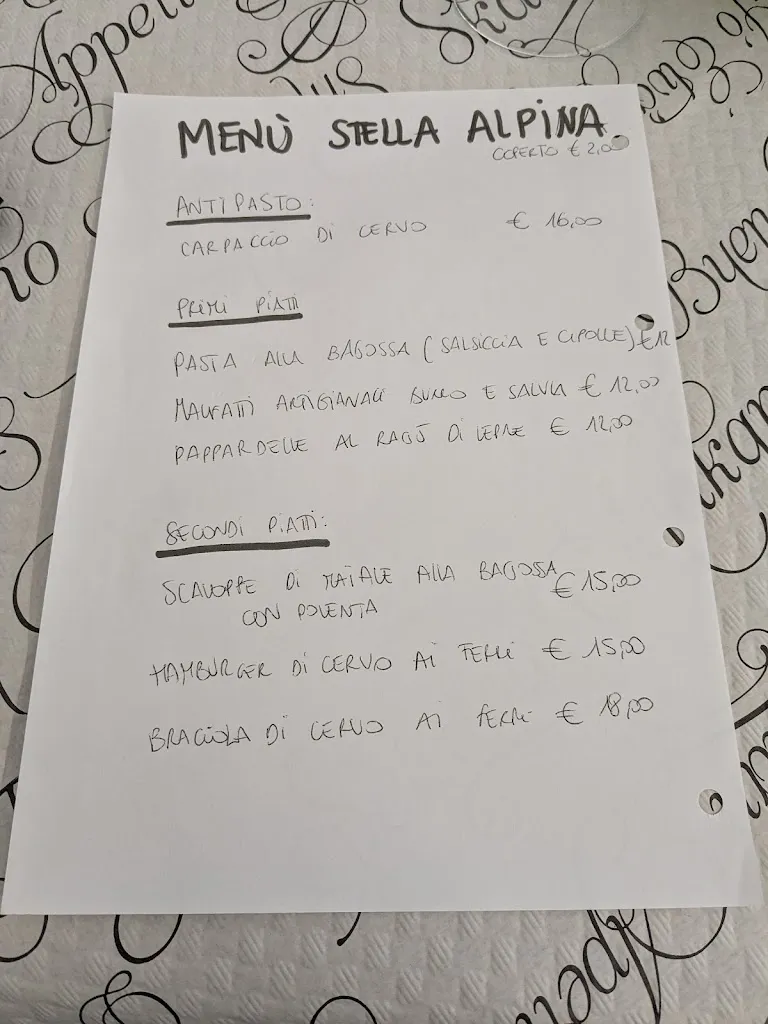 MENÙ STELLA ALPINA
COPERTO € 2,00
ANTIPASTO:
CARPACCIO DI CERVO € 16,00
PRIMI PIATTI
PASTA ALLA BAGOSSA (SALSICCIA E CIPOLLE) € 12
MALFATTI ARTIGIANALI BURRO E SALVIA € 12,00
PAPPARDELLE AL RAGÙ DI LEPRE € 12,00
SECONDI PIATTI:
SCALOPPE DI MAIALE ALLA BAGOSSA € 15,00
CON POLENTA
HAMBURGER DI CERVO AI FERRI € 15,00
BRACIOLA DI CERVO AI FERRI € 18,00
Appeti
Buen